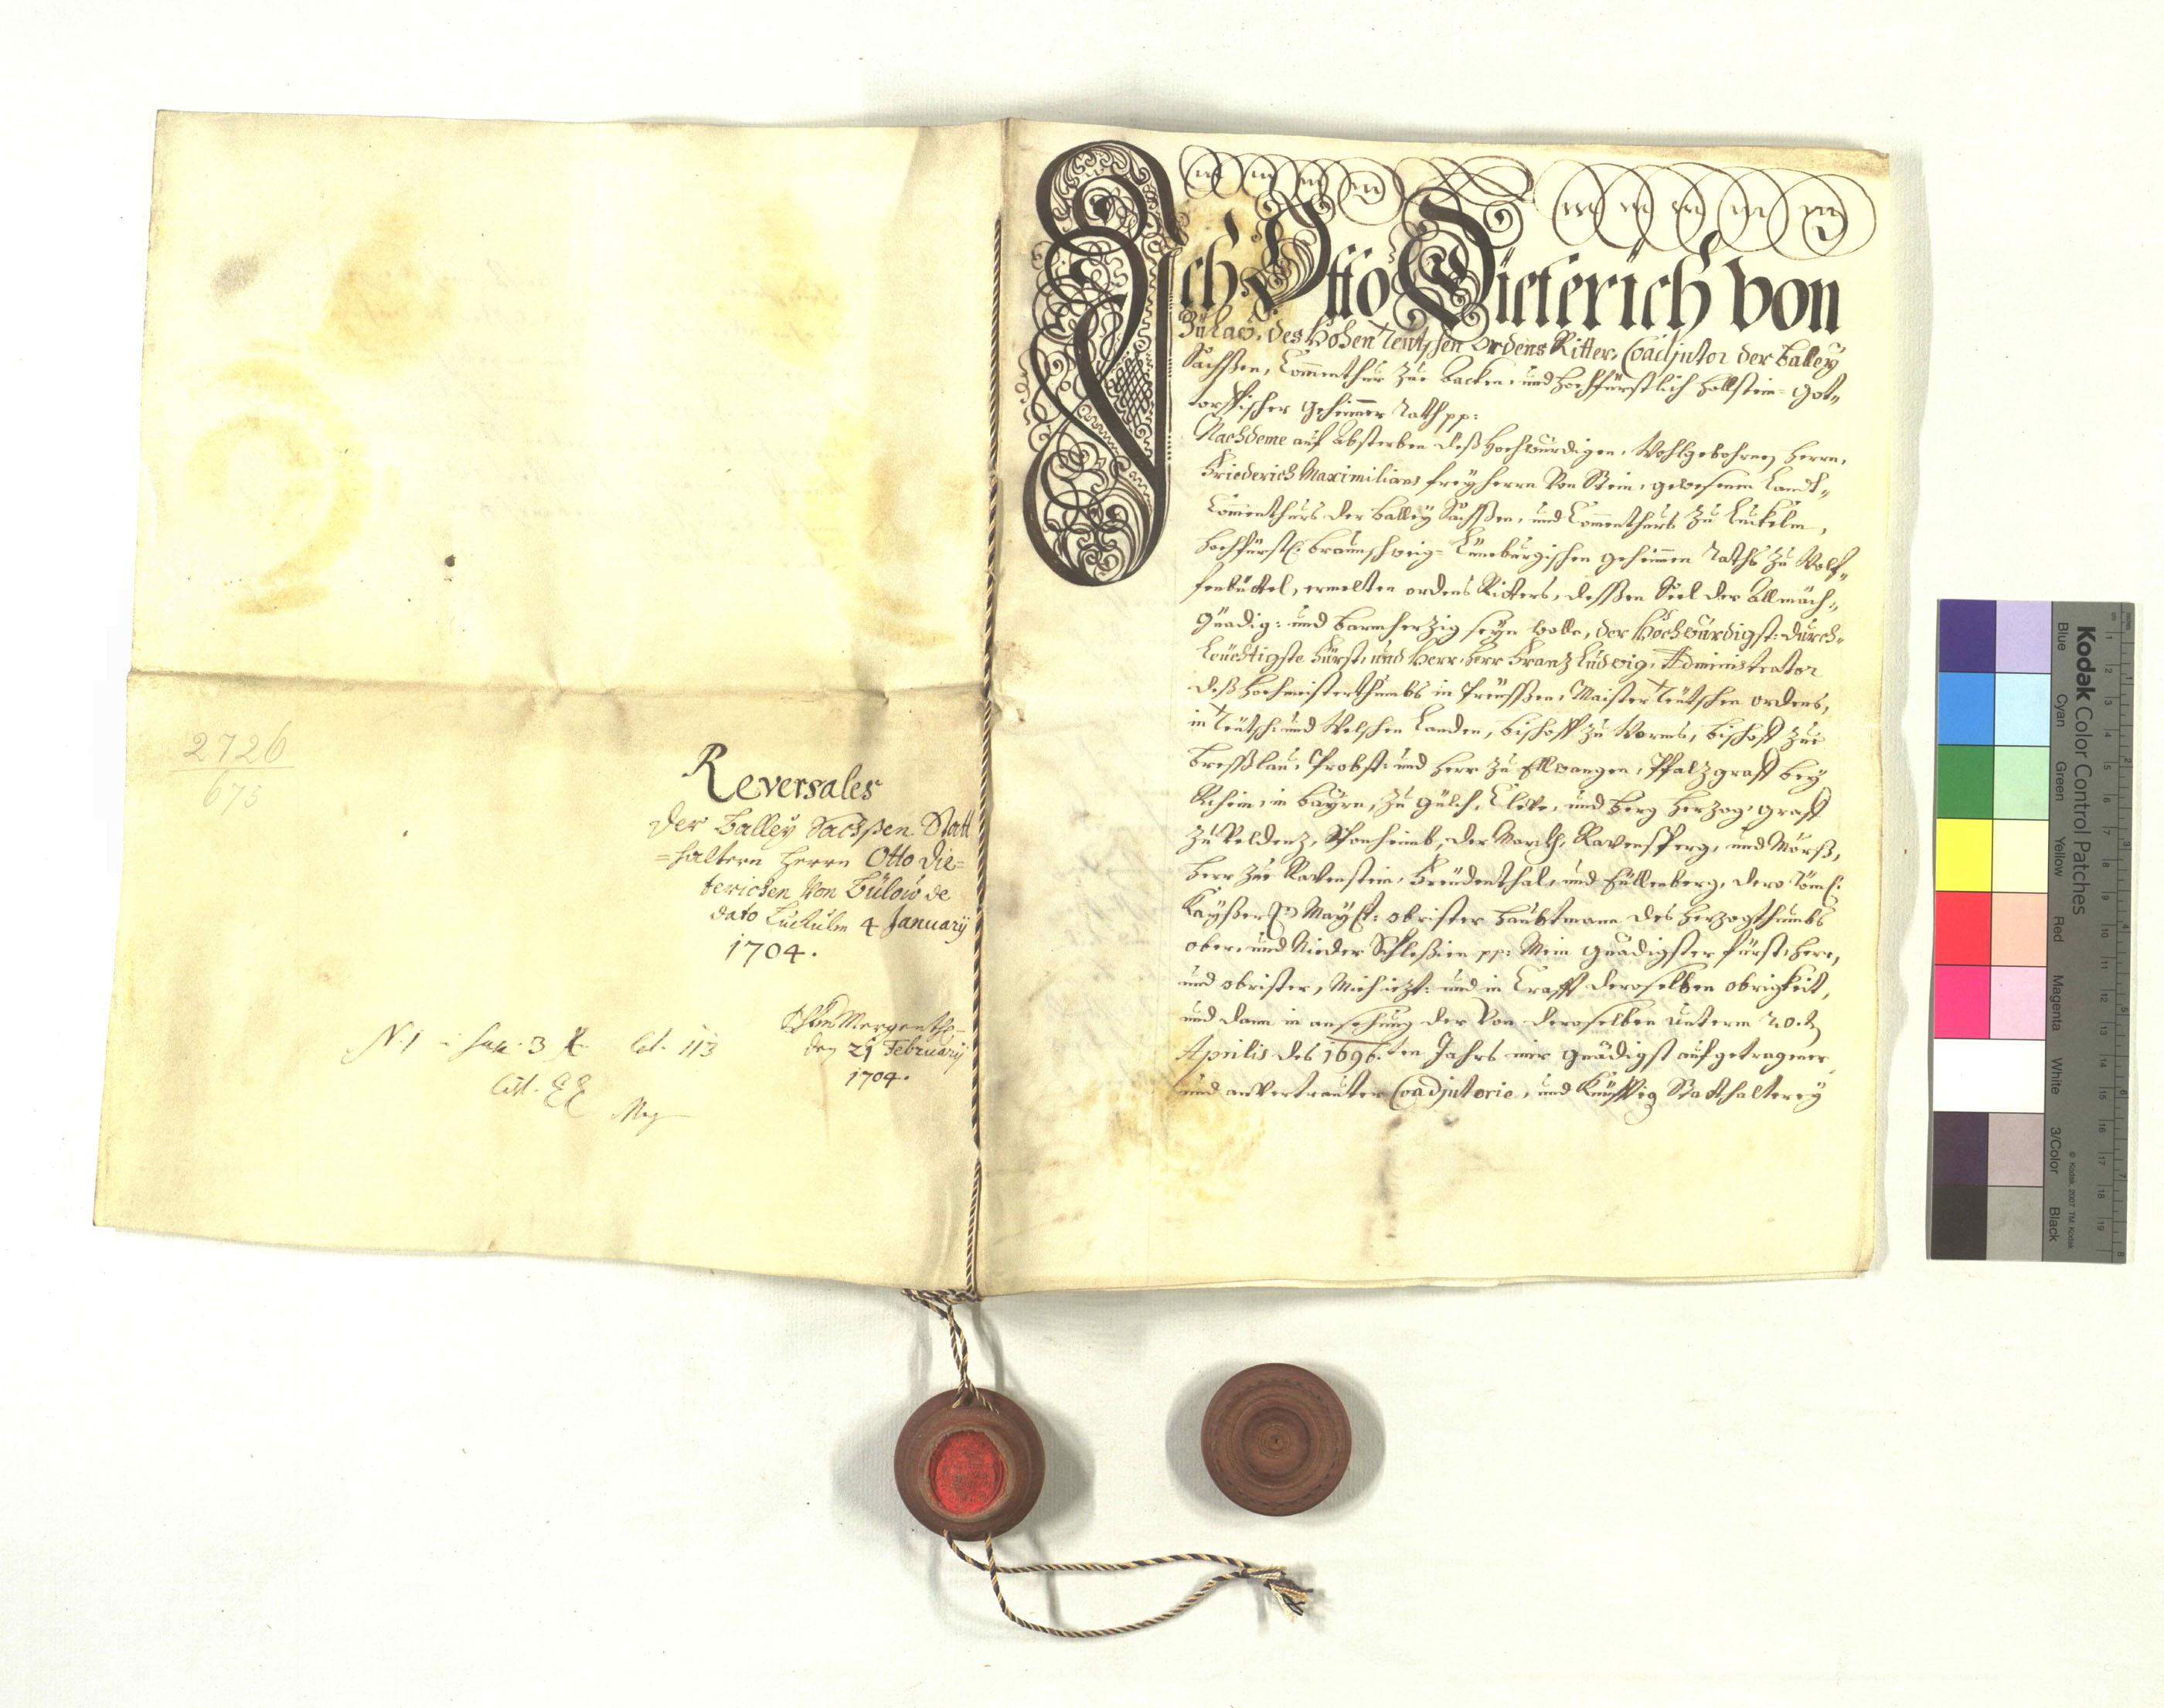 2726
675
Reversales
der Balley Sachßen Statt
=haltern Herrn Otto Die=
terichen von Bülow de
dato Luckulm 4 January
1704.
Mergenth
den 21 February
1704.
N. 1 3 113
Ich Otto Dieterich von
Bülaw, des Hohen Teutschen Ordens Ritter, Coadjutor der Balley
Sachßen, Commenthur zue Backen, und hochfürstlich hollstein-Got„
torffischer geheimer Rath pp:
Nachdeme auf Absterben deß Hochwürdigen, Wohlgebohrnen Herrn,
Friederich Maximilians freyherrn von Stein, gewesenen Landt„
Commenthurs der Balley Sachßen, und Commenthurs zu Luckelm,
hochfürstl: braunschweig-Lüneburgischen geheimen Raths zu Wolf„
fenbüttel, ermelten ordens Ritters, dessen Seel der Allmäch„
Gnädig: und barmherzig seyn wolle, der Hochwürdigst: Durch„
leuchtigste Fürst, und Herr, Herr Franz Ludwig, Administrator
deß hochmeisterthumbs in Preussen, Maister Teutschen ordens,
in Teutsch: und Welschen Landen, bischoff zu Worms, bischoff zue
Bresßlau, Probst: und Herr zu Ellwangen, Pfalzgraff bey
Rhein, in bayrn, zu Gülch, Cleve, und berg herzog, graff
zu Veldenz, Sponheimb, der Marckh, Ravenspurg, und Mörß,
herr zue Ravenstein, Freudenthal, und Eullenberg, dero Röm:
Kayßerl: Mayst: obrister haubtmann des herzogthumbs
ober, und Nieder Schlesien pp: Mein gnädigster fürst, herr,
und obrister, Mich iezt: und in Crafft deroselben obrigkeit,
und dann in ansehung der von deroselben unterm 20.ten
Aprilis des 1696.ten Jahrs mir gnädigst aufgetragener,
und anvertrauten Coadjutorie, und künfftig Statthalterey
Kodak Color Control Patches
© Kodak, 2007 TM: Kodak
Blue Cyan Green Yellow Red Magenta White 3/Color Black